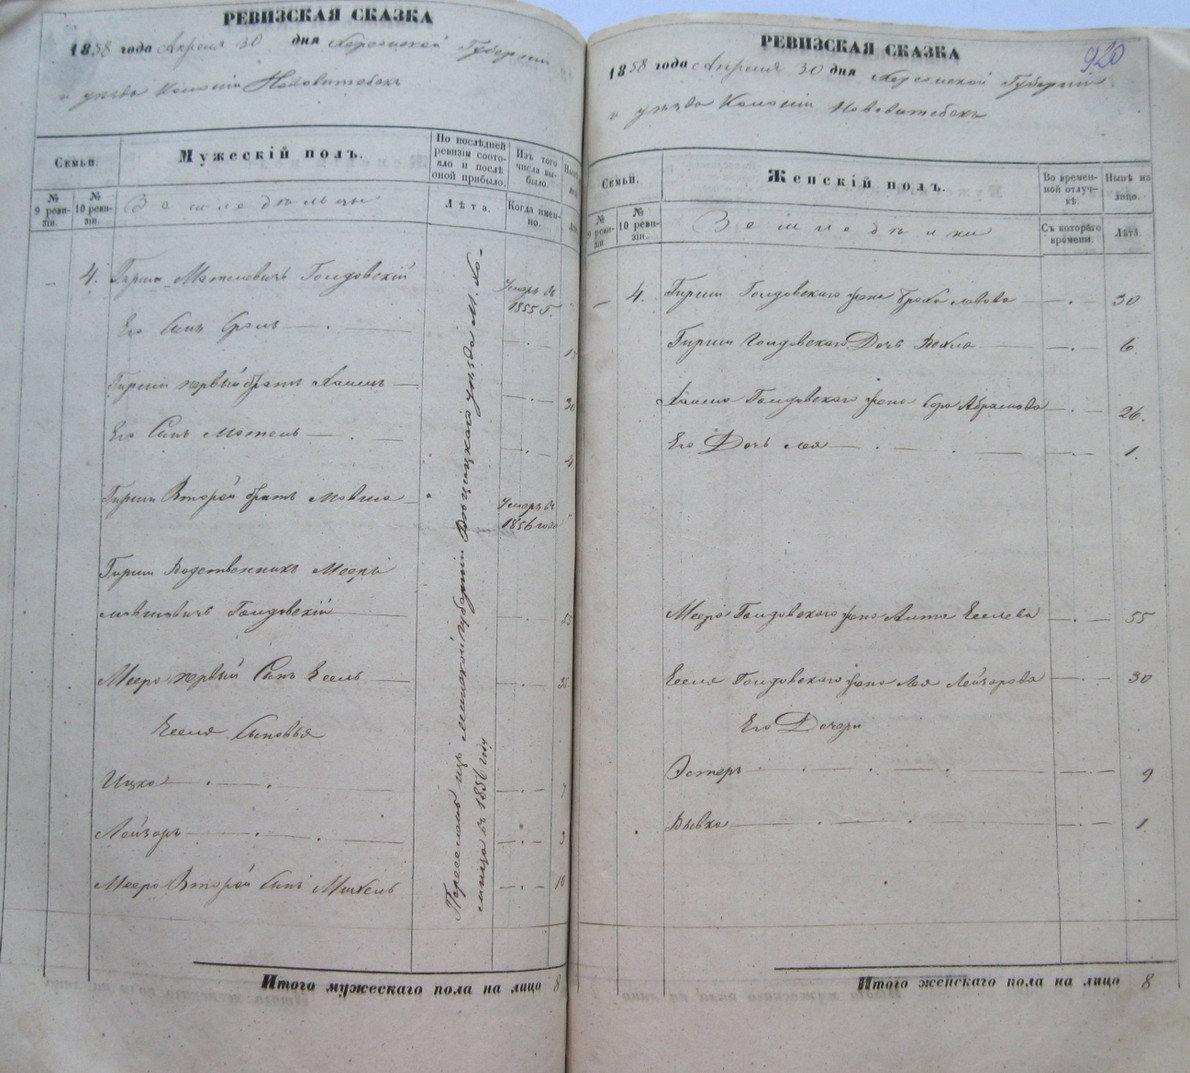 РЕВИЗСКАЯ СКАЗКА
1858 года Апреля 30 дня Херсонской Губерніи
и уѣзда Колоніи Нововитебскъ
Семьи.
Мужескій полъ.
По послѣдней ревизіи состояло и послѣ оной прибыло.
Изъ того числа выбыло.
№ 9 ревизіи.
№ 10 ревизіи.
Земледѣльцы
Лѣта.
Когда именно.
4. Гирша Мателевичъ Голдовскій
Умеръ въ 1855 г.
Его Сынъ Сроль
Гирши первый братъ Хаимъ 30
Его Сынъ Мотель 4
Гирши Второй братъ Мовша
Умеръ въ 1856 году
Гирши Родственникъ Мееръ
Мовшовичъ Голдовскій 55
Меера первый Сынъ Есель 35
Еселя Сыновья
Ицко 7
Лейзеръ 3
Меера Второй Сынъ Михель 10
Переселенъ изъ Минской Губерніи уѣзда М.
въ 1856 году
Итого мужескаго пола на лицо 8
РЕВИЗСКАЯ СКАЗКА
920
1858 года Апреля 30 дня Херсонской Губерніи
и уѣзда Колоніи Нововитебскъ
Семьи.
Женскій полъ.
Во временной отлучкѣ.
Нынѣ на лицо.
№ 9 ревизіи.
№ 10 ревизіи.
Земледѣлки
Съ котораго времени.
Лѣта.
4. Гирши Голдовскаго жена 30
Гирши Голдовскаго Дочь 6.
Хаима Голдовскаго жена Сора Абрамова 26.
Его Дочь Лея 1.
Меера Голдовскаго жена Еселева 55
Еселя Голдовскаго жена Лея Лейзерова 30
Его Дочери
Эстеръ 9
Рывка 1.
Итого женскаго пола на лицо 8